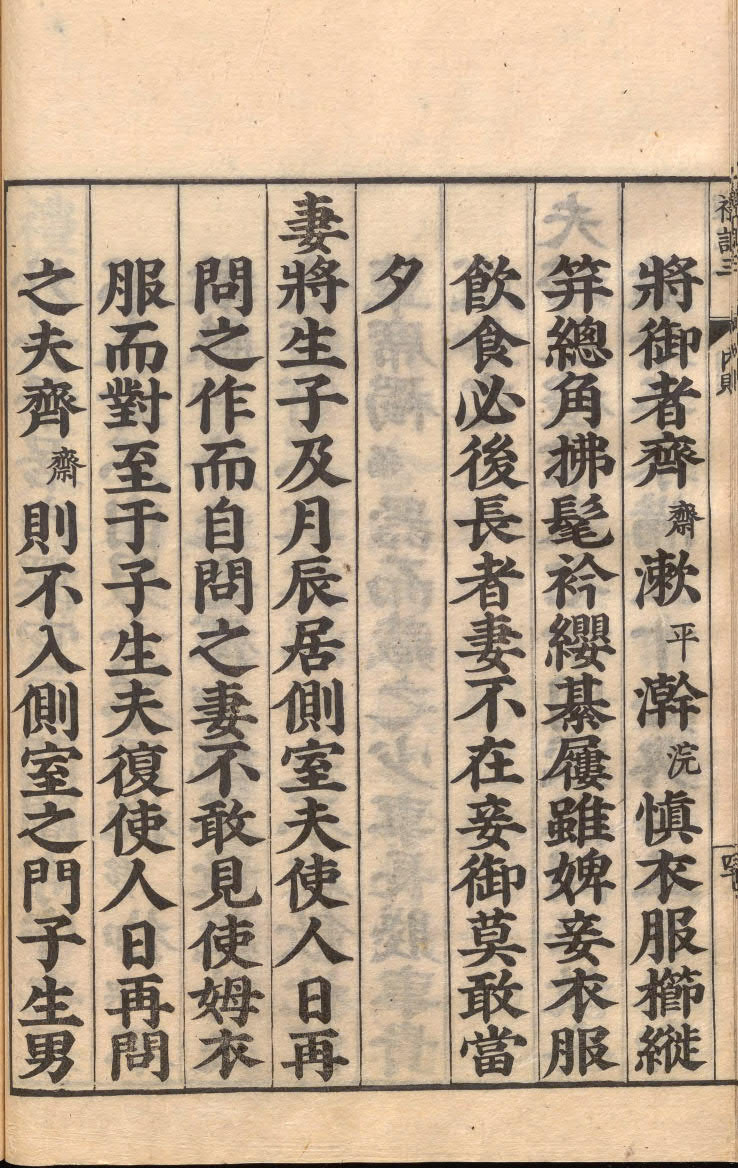 將御者齊齋漱平澣浣慎衣服櫛縰
筓總角拂髦衿纓綦屨雖婢妾衣服
飲食必後長者妻不在妾御莫敢當
夕
妻將生子及月辰居側室夫使人日再
問之作而自問之妻不敢見使姆衣
服而對至于子生夫復使人日再問
之夫齊齋則不入側室之門子生男